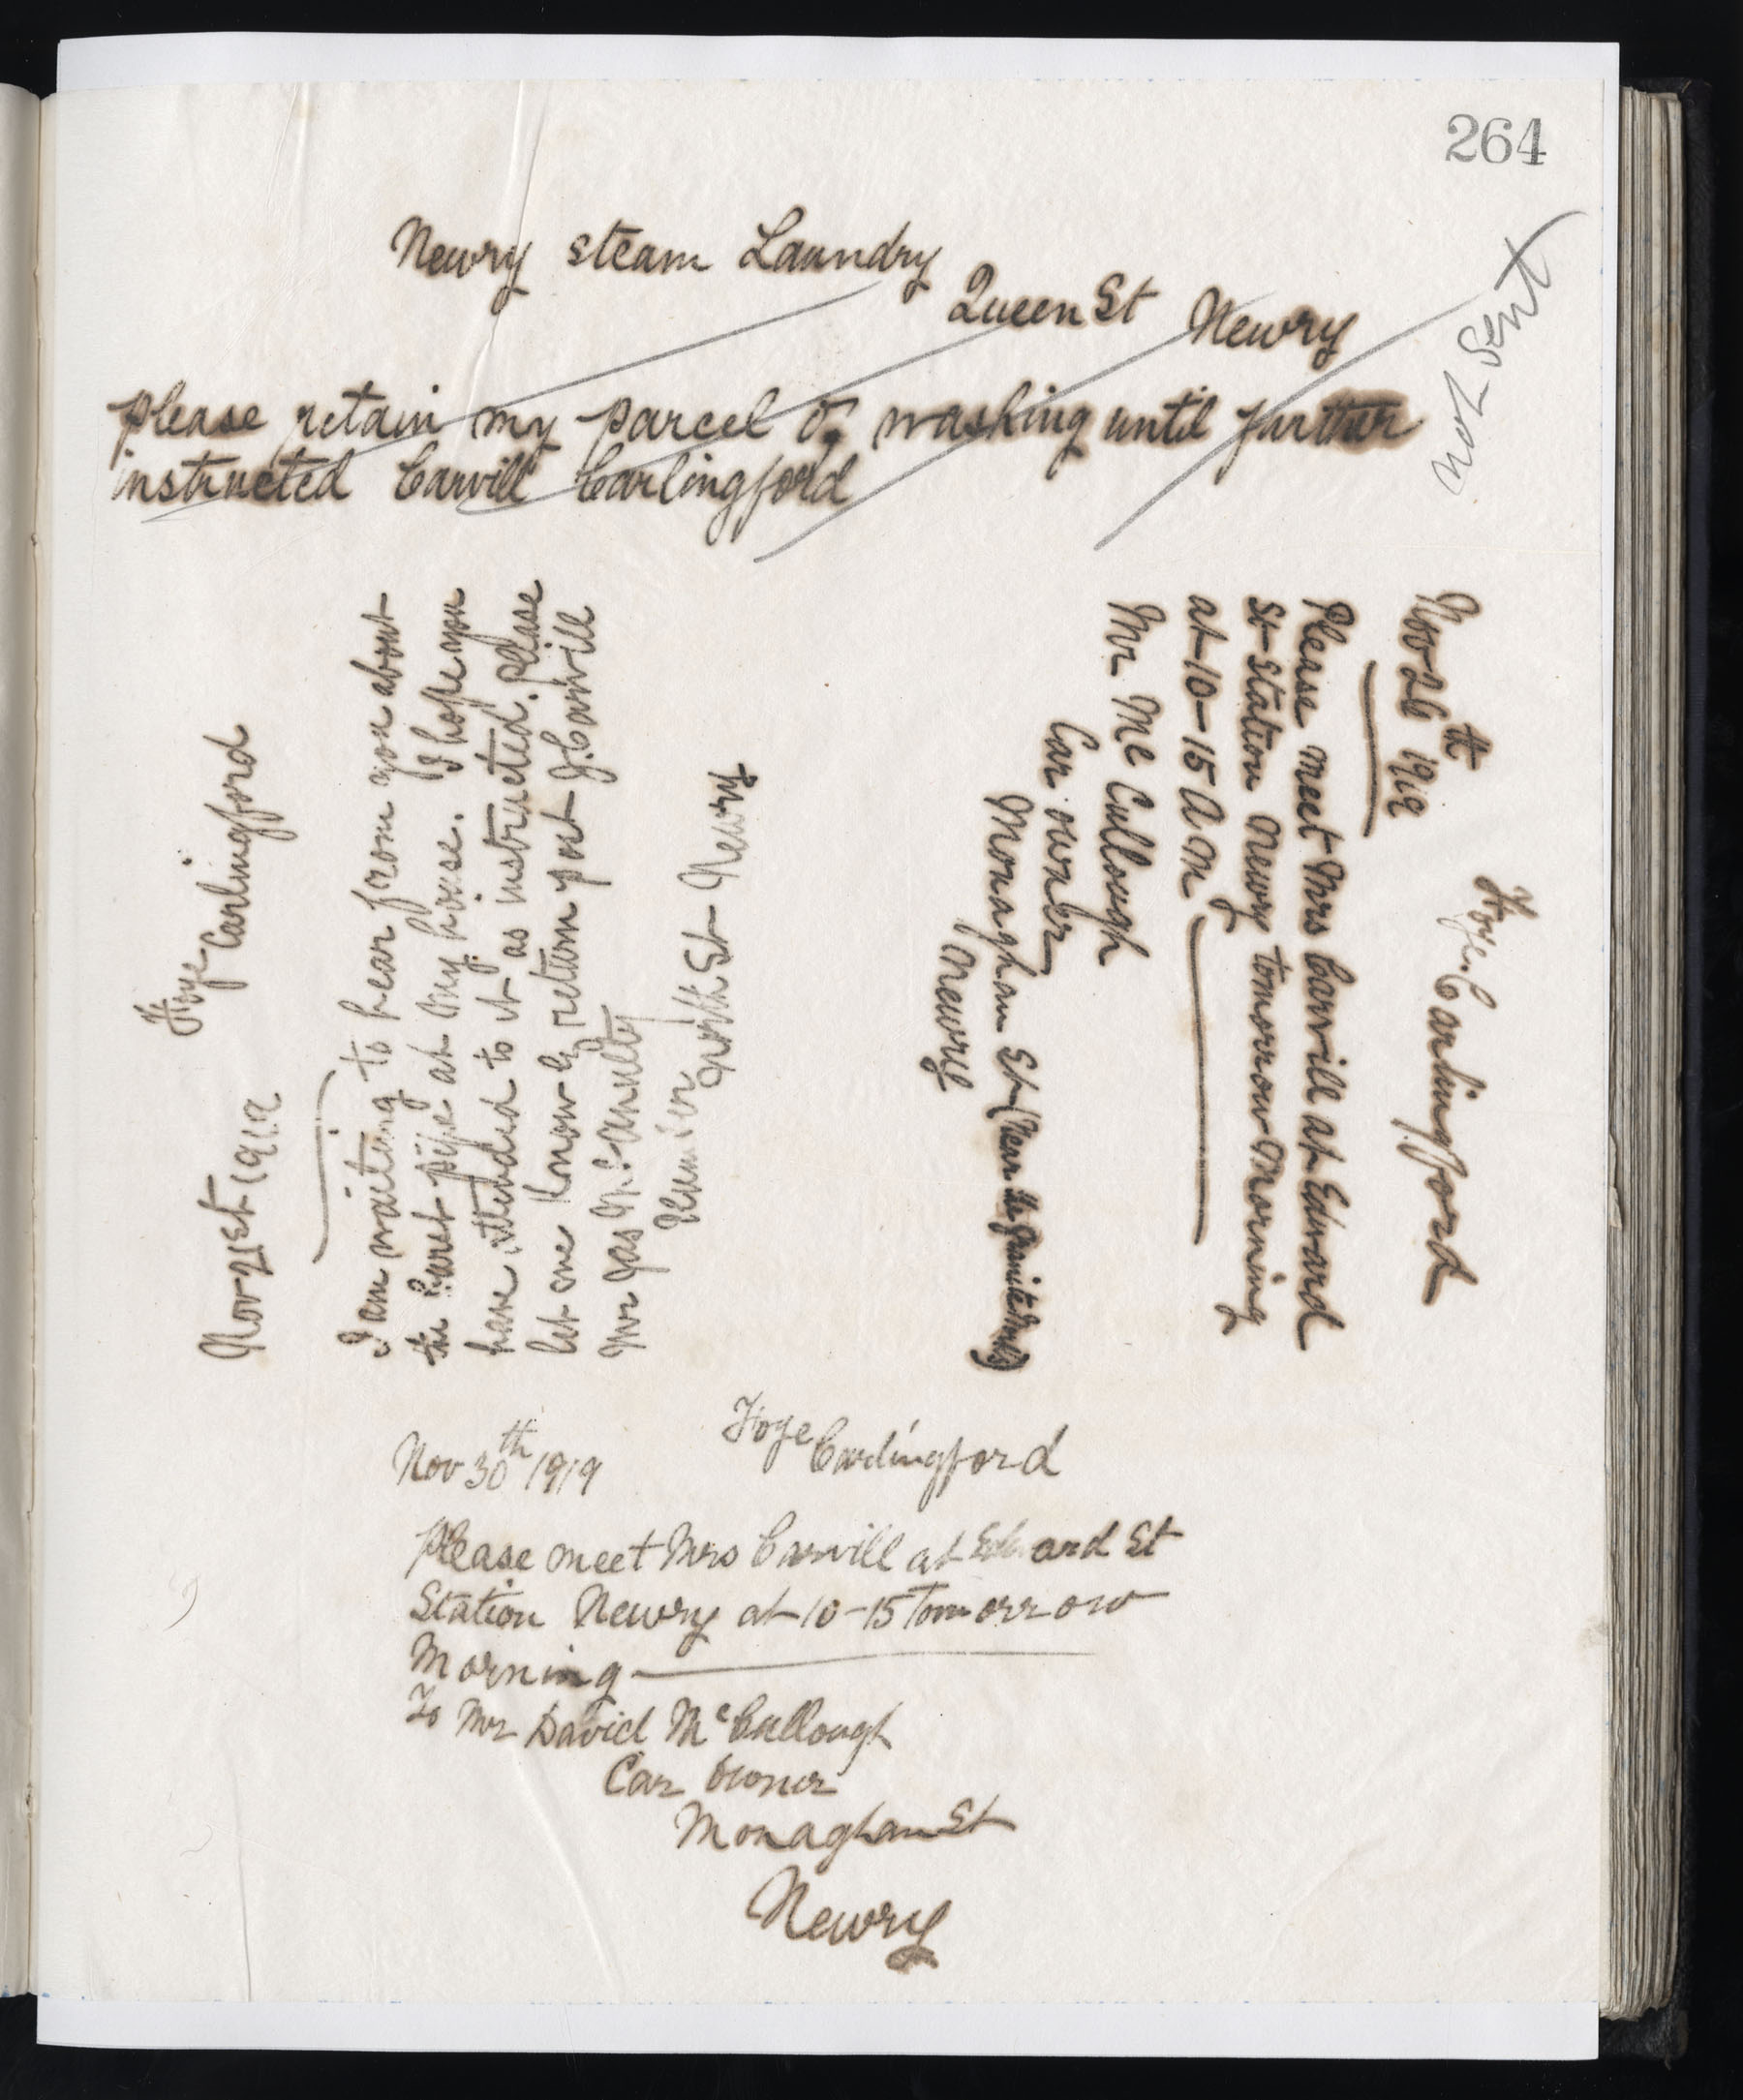 264
Newry steam Laundry
Queen St Newry
not sent
please retain my parcel of washing until further
instructed Carvill Carlingford
Nov 21st 1919 Foye Carlingford
I am waiting to hear from you about
the burst pipe at my house. I hope you
have attended to it as instructed. Please
let me know by return post J. Carvill
Mr Jas McAnulty
Plumber
North St Newry
Foye. Carlingford
Nov 26th 1919
Please meet Mrs Carvill at Edward
St Station Newry tomorrow Morning
at 10-15 A M
Mr Mc Cullough
Car owner
Monaghan St (Near the Granite Works)
Newry
Nov 30th 1919 Foye Carlingford
Please meet Mrs Carvill at Edward St
Station Newry at 10-15 Tomorrow
Morning
To Mr David McCullough
Car Owner
Monaghan St
Newry